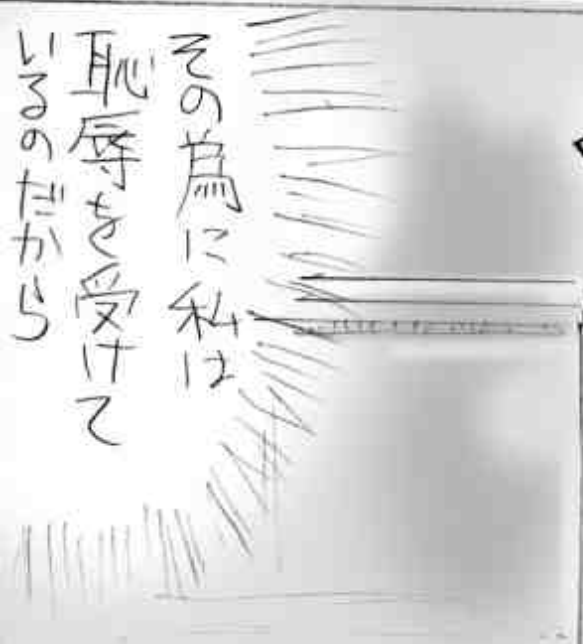 その為に私は
恥辱を受けて
いるのだから